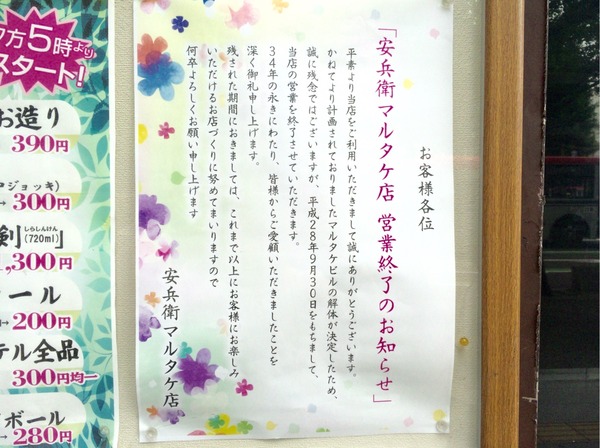 お客様各位
「安兵衛マルタケ店 営業終了のお知らせ」
平素より当店をご利用いただきまして誠にありがとうございます。
かねてより計画されておりましたマルタケビルの解体が決定したため、
誠に残念ではございますが、平成28年9月30日をもちまして、
当店の営業を終了させていただきます。
34年の永きにわたり、皆様からご愛顧いただきましたことを
深く御礼申し上げます。
残された期間におきましては、これまで以上にお客様にお楽しみ
いただけるお店づくりに努めてまいりますので
何卒よろしくお願い申し上げます
安兵衛 マルタケ店
夕方5時より
スタート!
お造り
390円
ジョッキ)
300円
剣」
しらしんけん
(720ml)
1,300円
ール
200円
テル全品
300円均一
ボール
280円